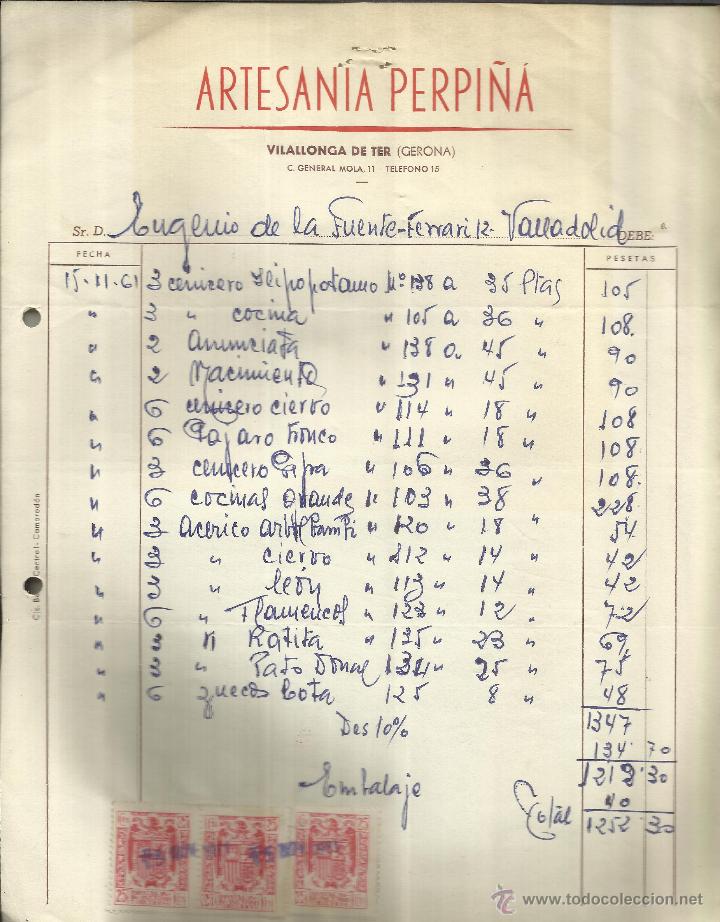 ARTESANIA PERPIÑÁ
VILALLONGA DE TER (GERONA)
C. GENERAL MOLA, 11 - TELEFONO 15
Sr. D. Eugenio de la Fuente-Ferrari 12- Valladolid DEBE:
FECHA PESETAS
15-11-61 3 cenicero Hipopotamo Nº 138 a 35 Ptas 105
" 3 " cocina " 105 a 36 " 108
" 2 Anunciata " 138 a 45 " 90
" 2 Nacimiento " 131 " 45 " 90
" 6 cenicero ciervo " 114 " 18 " 108
" 6 Pajaro tronco " 111 " 18 " 108
" 3 cenicero Pipa " 106 " 36 " 108
" 6 cocinas Grande " 103 " 38 " 228
" 3 Acerico " 120 " 18 " 54
" 3 " ciervo " 112 " 14 " 42
" 3 " león " 113 " 14 " 42
" 6 " Flamencos " 123 " 12 " 72
" 3 " Ratita " 135 " 23 " 69
" 3 " Pato Donal " 134 " 25 " 75
" 6 zuecos bota 125 8 " 48
1347
Des 10% 134 70
1212 30
Embalaje 40
Total 1252 30
www.todocoleccion.net